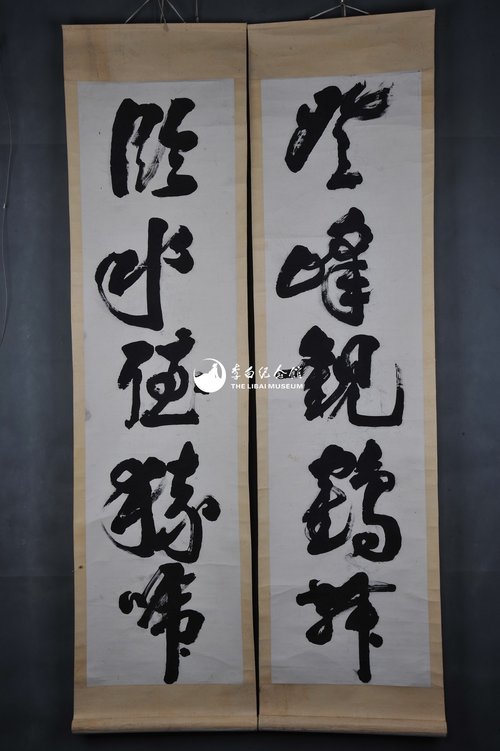 登峰觀鶴舞
臨水聽猿啼
李白纪念馆
THE LIBAI MUSEUM